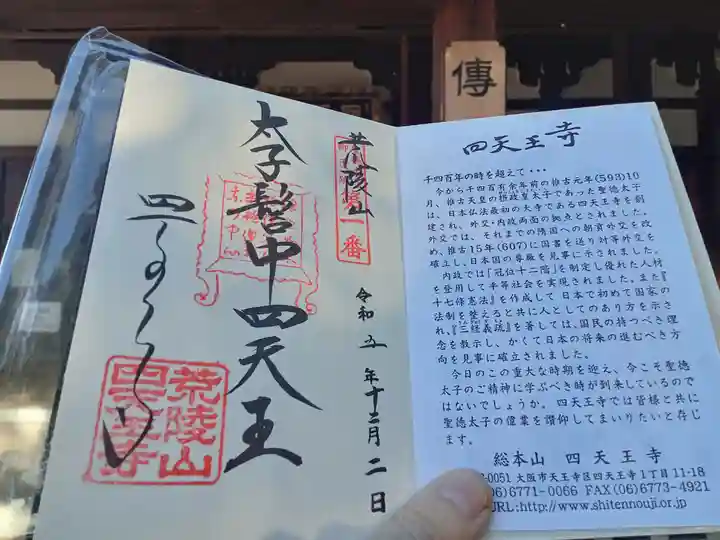 傳
荒陵山
第一番
太子髻中四天王
四天王寺
令和五年十二月二日
荒陵山
四天王寺
四天王寺
千四百年の時を超えて・・・
今から千四百有余年前の推古元年(593)10
月、推古天皇の摂政皇太子であった聖徳太子
は、日本仏法最初の大寺である四天王寺を創
建され、外交・内政両面の拠点とされました。
外交では、それまでの隋国への朝貢外交を改
め、推古15年(607)に国書を送り対等外交を
確立し、日本国の尊厳を見事に示されました。
内政では「冠位十二階」を制定し優れた人材
を登用して平等社会を実現されました。また『
十七條憲法』を作成して日本で初めて国家の
法制を整えると共に人としてのあり方を示さ
れ、『三経義疏』を著しては、国民の持つべき理
念を教示し、かくて日本の将来の進むべき方
向を見事に確立されました。
今日のこの重大な時期を迎え、今こそ聖徳
太子のご精神に学ぶべき時が到来しているので
はないでしょうか。四天王寺では皆様と共に
聖徳太子の偉業を讃仰してまいりたいと存じ
ます。
総本山 四天王寺
-0051 大阪市天王寺区四天王寺1丁目11-18
(06)6771-0066 FAX(06)6773-4921
URL:http://www.shitennouji.or.jp